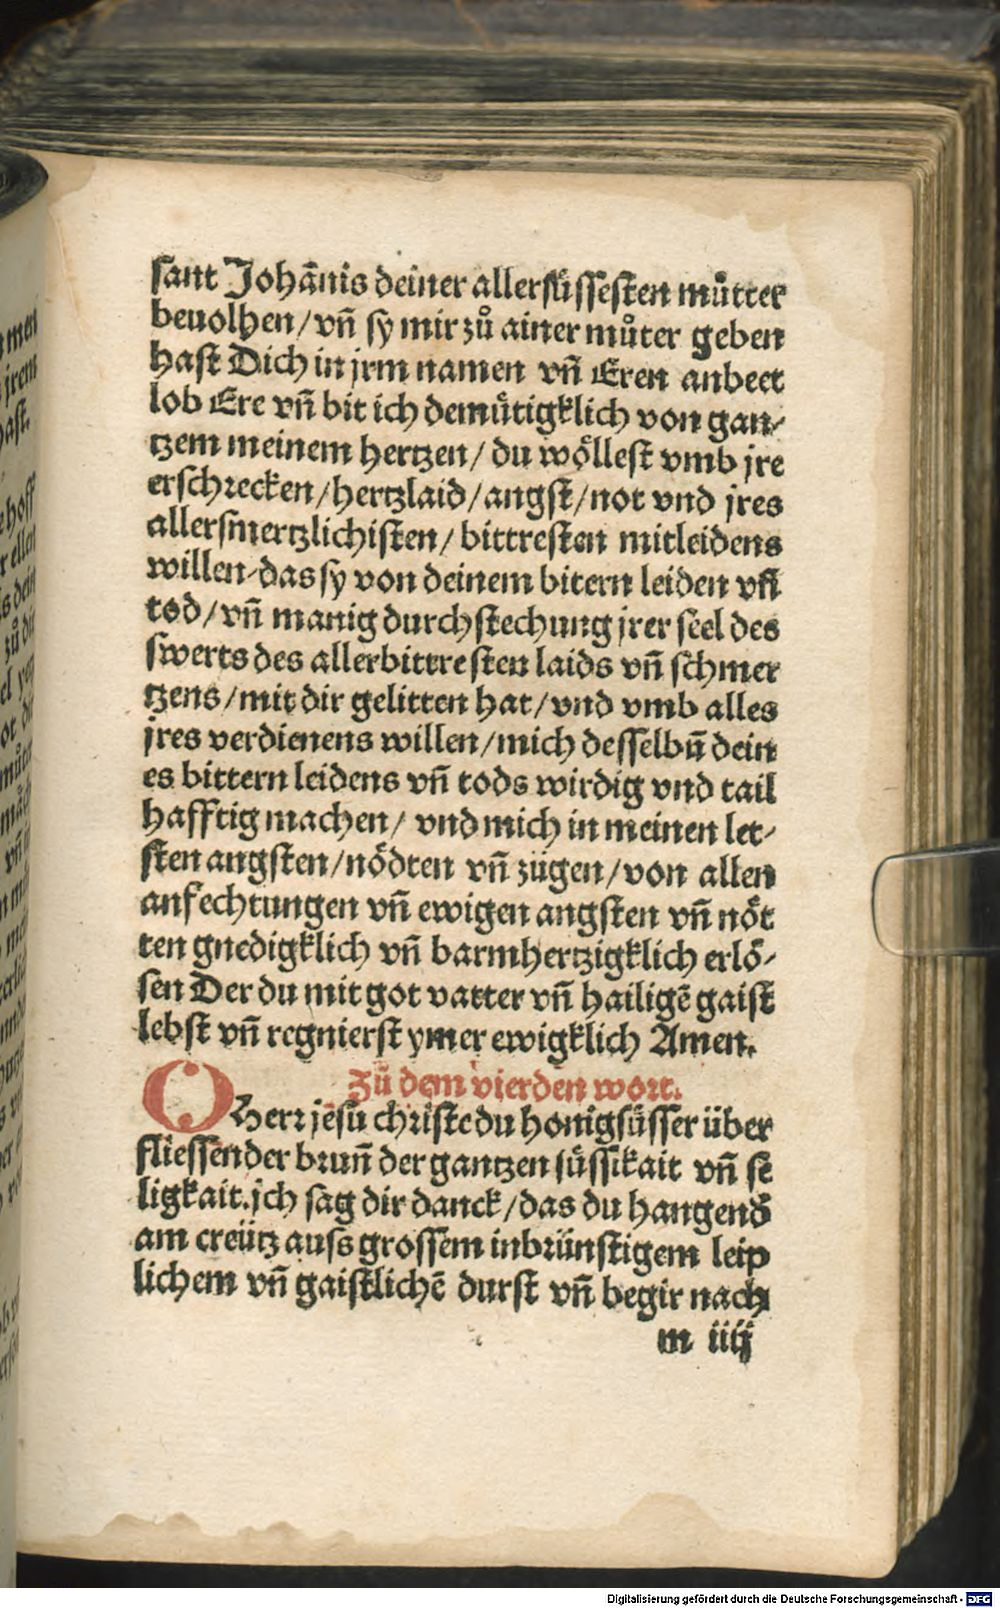 sant Johānis deiner allersüssesten můtter
beuolhen/vn̄ sy mir zů ainer můter geben
hast Dich in jrm namen vn̄ Eren anbeet
lob Ere vn̄ bit ich demůtigklich von gan/
tzem meinem hertzen/ du wöllest vmb jre
erschrecken/hertzlaid/angst/not vnd jres
allersmertzlichisten/ bittresten mitleidens
willen/das sy von deinem bitern leiden vn̄
tod/ vn̄ manig durchstechung jrer seel des
swerts des allerbittresten laids vn̄ schmer
tzens/mit dir gelitten hat/vnd vmb alles
jres verdienens willen/mich desselbn̄ dein
es bittern leidens vn̄ tods wirdig vnd tail
hafftig machen/ vnd mich in meinen let/
sten angsten/nödten vn̄ zügen/von allen
anfechtungen vn̄ ewigen angsten vn̄ nöt
ten gnedigklich vn̄ barmhertzigklich erlö/
sen Der du mit got vatter vn̄ hailigē gaist
lebst vn̄ regnierst ymer ewigklich Amen.
Zů dem vierden wort.
O Herr jesu christe du honigsüsser über
fliessender brun̄ der gantzen süssikait vn̄ se
ligkait. jch sag dir danck/das du hangend
am creütz auss grossem inbrünstigem leip
lichem vn̄ gaistlichē durst vn̄ begir nach
m iiij
men
jrem
hast.
hoff
ellen
dein
zů dir
Digitalisierung gefördert durch die Deutsche Forschungsgemeinschaft - DFG